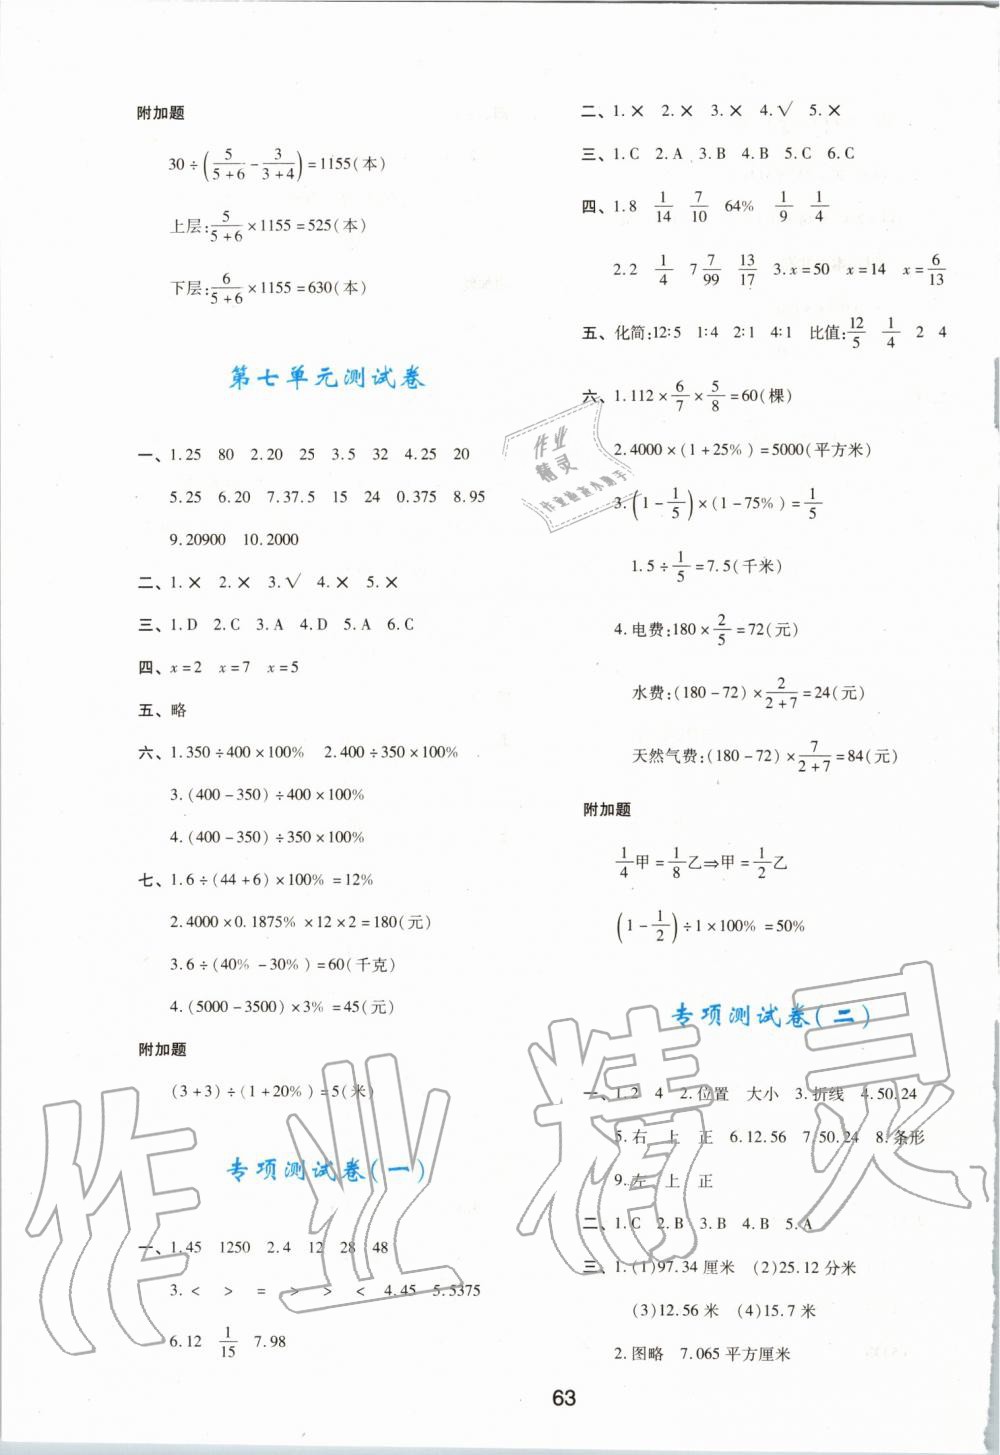 附加题
30÷(5/(5+6)-3/(3+4))=1155(本)
上层:5/(5+6)×1155=525(本)
下层:6/(5+6)×1155=630(本)
第七单元测试卷
一、1.25 80 2.20 25 3.5 32 4.25 20
5.25 6.20 7.37.5 15 24 0.375 8.95
9.20900 10.2000
二、1.× 2.× 3.√ 4.× 5.×
三、1.D 2.C 3.A 4.D 5.A 6.C
四、x=2 x=7 x=5
五、略
六、1.350÷400×100% 2.400÷350×100%
3.(400-350)÷400×100%
4.(400-350)÷350×100%
七、1.6÷(44+6)×100%=12%
2.4000×0.1875%×12×2=180(元)
3.6÷(40%-30%)=60(千克)
4.(5000-3500)×3%=45(元)
附加题
(3+3)÷(1+20%)=5(米)
专项测试卷(一)
一、1.45 1250 2.4 12 28 48
3.< > = > > < 4.45 5.5375
6.12 1/15 7.98
二、1.× 2.× 3.× 4.√ 5.×
三、1.C 2.A 3.B 4.B 5.C 6.C
四、1.8 1/14 7/10 64% 1/9 1/4
2.2 1/4 7 7/99 13/17 3.x=50 x=14 x=6/13
五、化简:12:5 1:4 2:1 4:1 比值:12/5 1/4 2 4
六、1.112×6/7×5/8=60(棵)
2.4000×(1+25%)=5000(平方米)
3.(1-1/5)×(1-75%)=1/5
1.5÷1/5=7.5(千米)
4.电费:180×2/5=72(元)
水费:(180-72)×2/(2+7)=24(元)
天然气费:(180-72)×7/(2+7)=84(元)
附加题
1/4甲=1/8乙⇒甲=1/2乙
(1-1/2)÷1×100%=50%
专项测试卷(二)
一、1.2 4 2.位置 大小 3.折线 4.50.24
5.右 上 正 6.12.56 7.50.24 8.条形
9.左 上 正
二、1.C 2.B 3.B 4.B 5.A
三、1.(1)97.34厘米 (2)25.12分米
(3)12.56米 (4)15.7米
2.图略 7.065平方厘米
63
作业
精灵
作业检查小助手
作业精灵